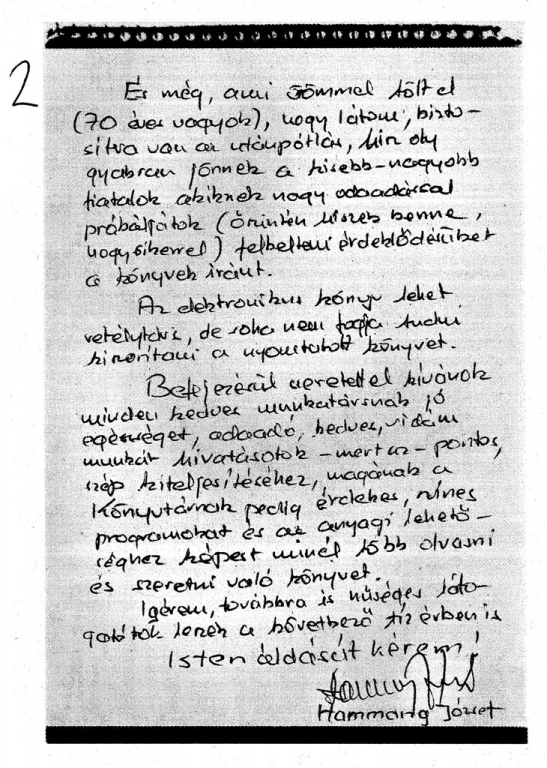 2
És még, ami örömmel tölt el
(70 éves vagyok), hogy látom, bizto-
sítva van az utánpótlás, hisz oly
gyakran jönnek a kisebb-nagyobb
fiatalok akiknek nagy odaadással
próbáljátok (őszintén hiszek benne,
hogy sikerrel) felkelteni érdeklődésüket
a könyvek iránt.
Az elektronikus könyv lehet
vetélytárs, de soha nem fogja tudni
kiszorítani a nyomtatott könyvet.
Befejezésül szeretettel kívánok
minden kedves munkatársnak jó
egészséget, odaadó, kedves, vidám
munkát hivatásotok – mert az – pontos,
szép kiteljesítéséhez, magának a
Könyvtárnak pedig érdekes, színes
programokat és az anyagi lehető-
séghez képest minél több olvasni
és szeretni való könyvet.
Igérem, továbbra is hűséges láto-
gatótok leszek a következő tíz évben is
Isten áldását kérem!
Hammang József